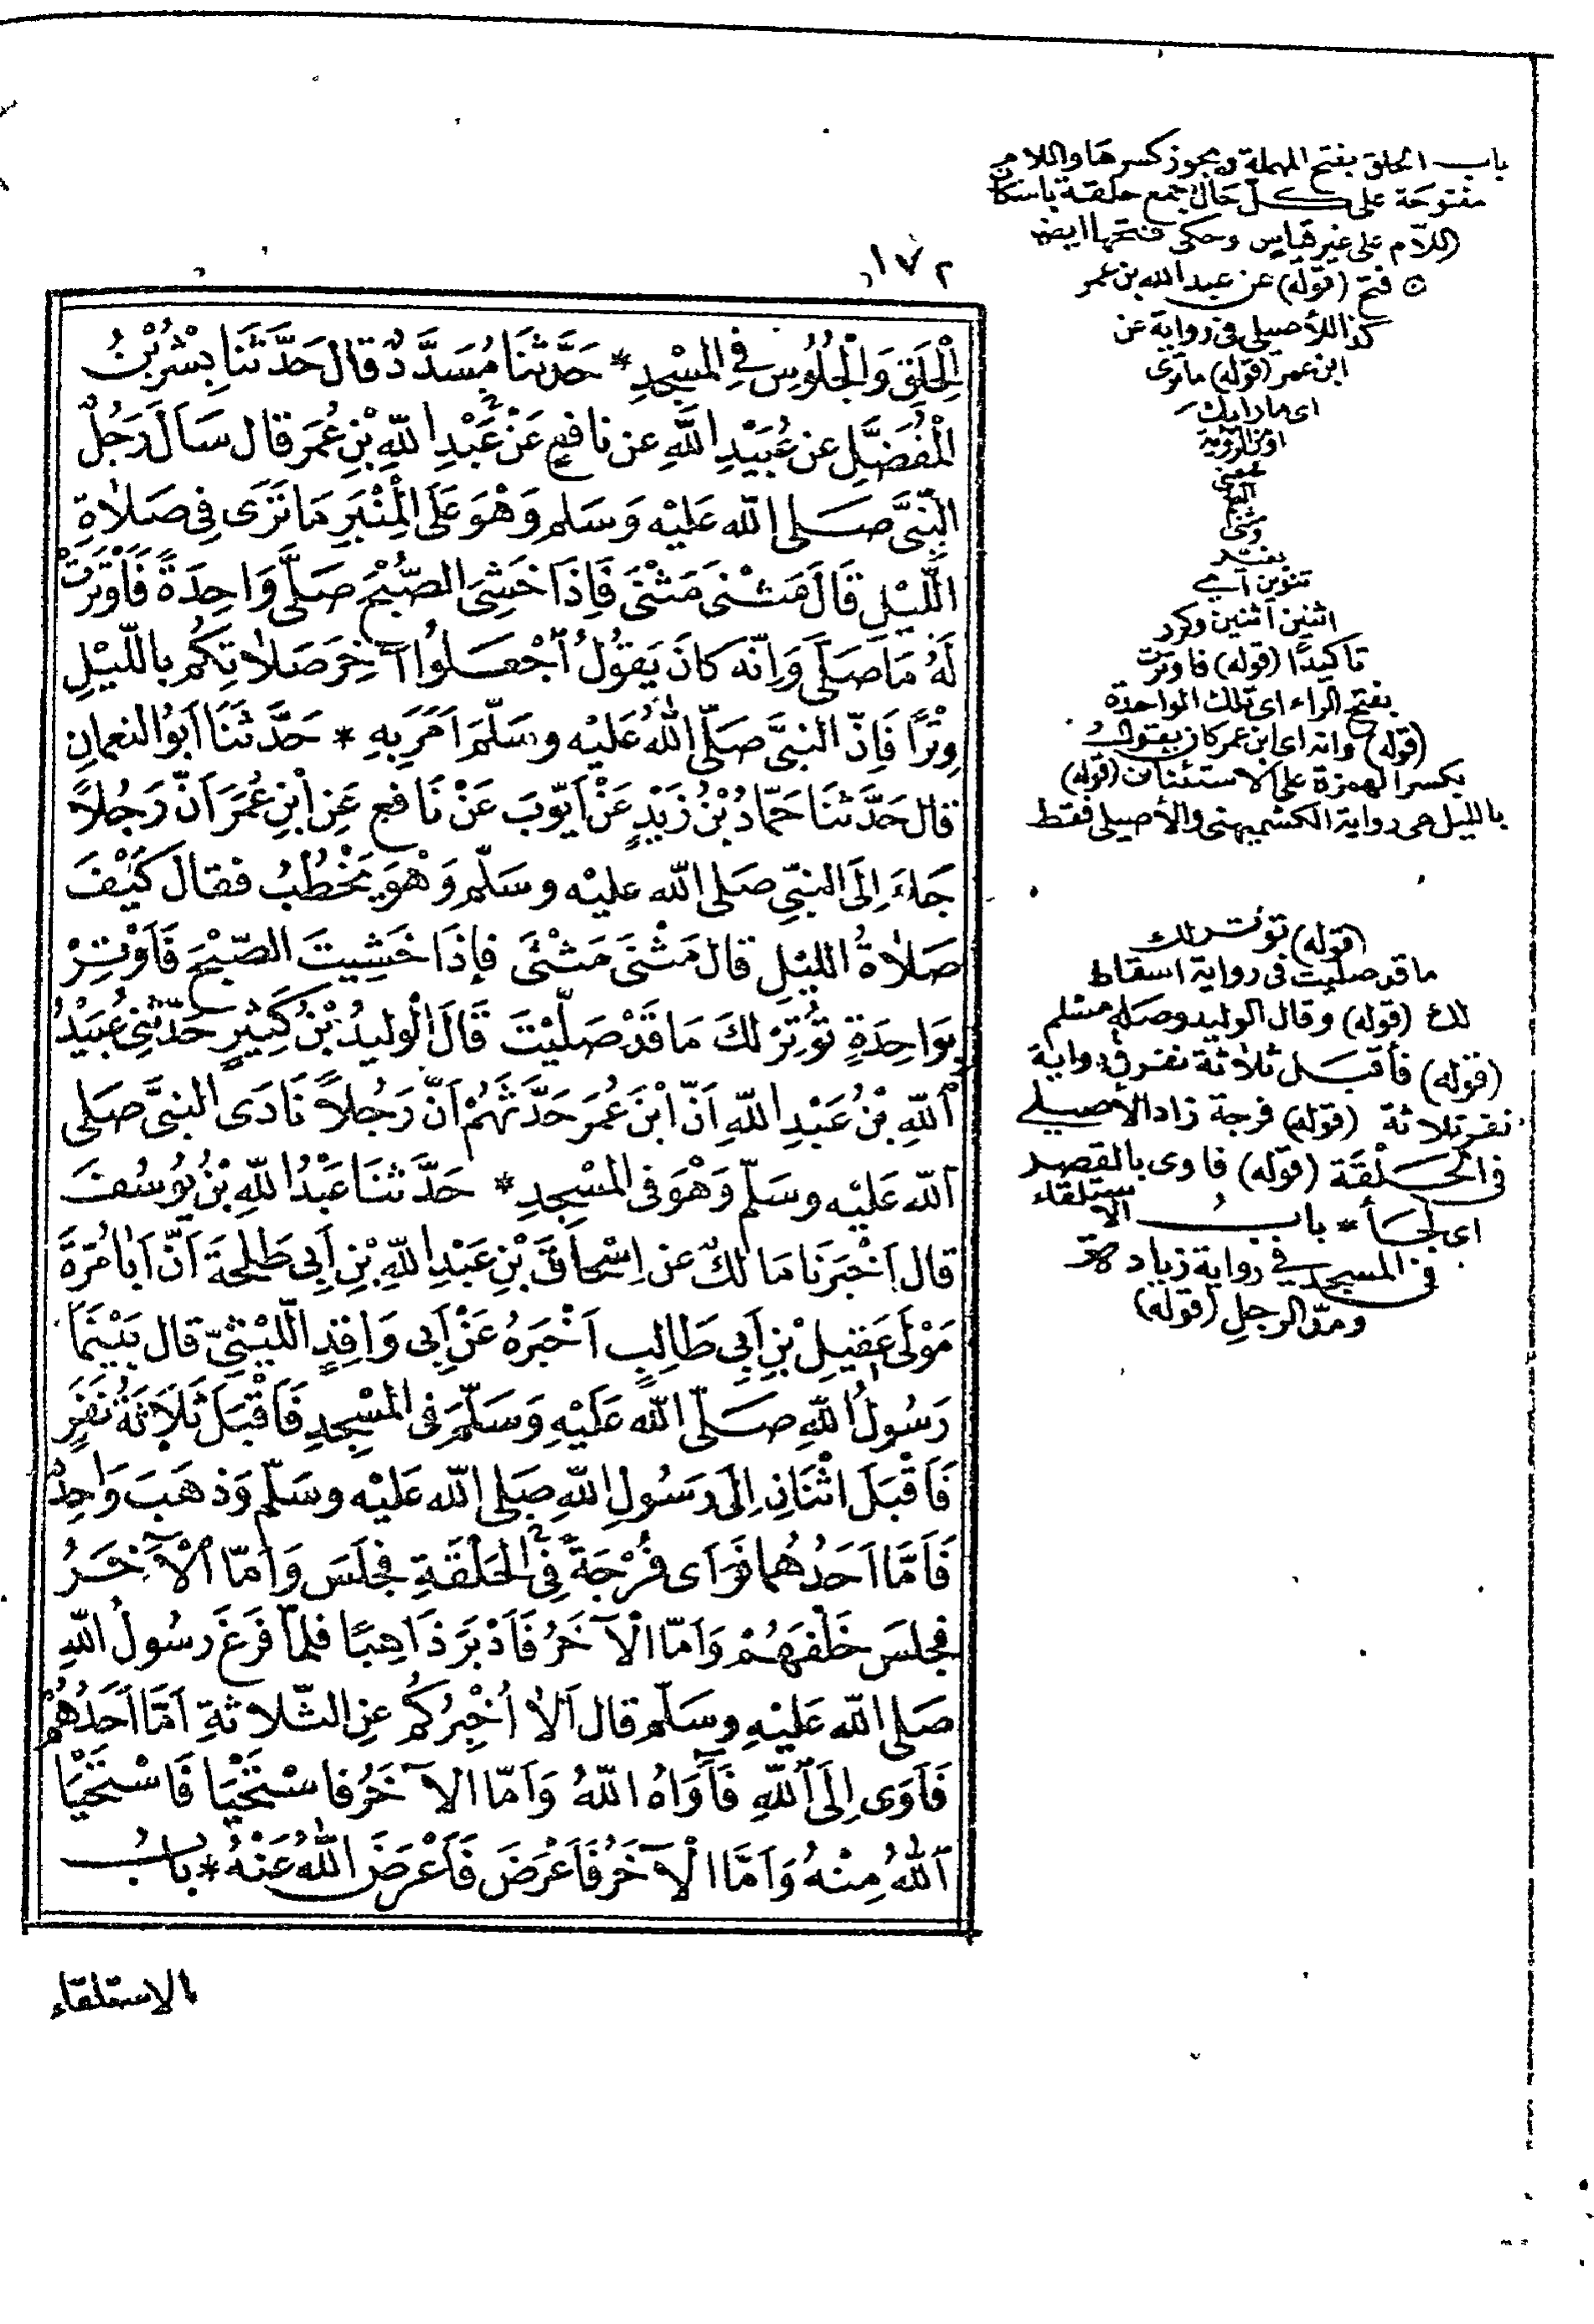 ١٧٢
الْحِلَقِ وَالْجُلُوسِ فِي الْمَسْجِدِ * حَدَّثَنَا مُسَدَّدٌ قَالَ حَدَّثَنَا بِشْرُ بْنُ
الْمُفَضَّلِ عن عُبَيْدِ اللّٰهِ عن نافِعٍ عَنْ عَبْدِ اللّٰهِ بْنِ عُمَرَ قال سَأَلَ رَجُلٌ
النَّبِيَّ صَلى الله عَلَيْه وَسَلم وَهْوَ عَلَى الْمِنْبَرِ مَا تَرَى فِي صَلاةِ
اللَّيْلِ قَالَ مَثْنَى مَثْنَى فَإِذَا خَشِيَ الصُّبْحَ صَلَّى وَاحِدَةً فَأَوْتَرَتْ
لَهُ مَا صَلَّى وَإِنّه كَانَ يَقُولُ اجْعَلُوا آخِرَ صَلاتِكُم بِاللَّيْلِ
وِتْرًا فَإِنَّ النبيَّ صَلّى اللهُ عَلَيْه وسَلَّمَ أَمَرَ بِهِ * حَدَّثَنَا أَبُو النعمانِ
قال حَدَّثَنَا حَمَّادُ بْنُ زَيْدٍ عَنْ أَيّوبَ عَنْ نَافِعٍ عَنِ ابْنِ عُمَرَ أَنَّ رَجُلاً
جَاءَ إِلَى النبيّ صَلى الله عليْه وسَلّم وَهْوَ يَخْطُبُ فقالَ كَيْفَ
صَلاةُ الليْلِ قال مَثْنَى مَثْنَى فإِذَا خَشِيتَ الصّبْحَ فَأَوْتِرْ
بِوَاحِدَةٍ تُوتِرْ لكَ مَا قَدْ صَلَّيْتَ قَالَ الْوليدُ بْنُ كَثِيرٍ حَدّثَنِي عُبَيْدُ
اللهِ بْنُ عَبْدِ اللهِ أَنّ ابْنَ عُمَرَ حَدَّثَهُمْ أَنّ رَجُلاً نَادَى النبيَّ صَلى
الله عَلَيْه وسَلّم وَهْوَ فِي الْمَسْجِدِ * حَدَّثَنَا عَبْدُ اللهِ بْنُ يُوسُفَ
قال أَخْبَرَنَا مَالكٌ عن إِسْحَاقَ بْنِ عَبْدِ اللهِ بْنِ أَبِي طَلْحَةَ أَنَّ أَبَا مُرّةَ
مَوْلَى عَقِيلِ بْنِ أَبِي طَالِبٍ أَخْبَرَهُ عَنْ أَبِي وَاقِدٍ اللَّيْثيِّ قال بَيْنَمَا
رَسُولُ اللهِ صَلّى الله عَلَيْهِ وَسَلّمَ في الْمَسْجِدِ فَأَقْبَلَ ثَلاثَةُ نَفَرٍ
فَأَقْبَلَ اثْنَانِ إِلَى رَسُولِ اللهِ صَلى الله عَلَيْه وسَلّم وَذهَبَ وَاحِدٌ
فَأَمَّا أَحَدُهُما فَرَأَى فُرْجَةً في الْحَلْقَةِ فجَلَسَ وَأَمّا الْآخَرُ
فجَلسَ خَلْفَهُمْ وَأَمّا الْآخَرُ فَأَدْبَرَ ذَاهِبًا فلمّا فَرَغَ رَسُولُ اللهِ
صَلى الله عَلَيْهِ وسَلّم قال أَلا أُخْبِرُكُم عنِ الثّلاثَةِ أَمّا أَحَدُهُمْ
فَأَوَى إِلَى اللهِ فَآوَاهُ اللّهُ وَأَمّا الآخَرُ فاسْتَحْيَا فَاسْتَحْيَا
اللهُ مِنْهُ وَأَمَّا الْآخَرُ فَأَعْرَضَ فَأَعْرَضَ اللّهُ عَنْهُ * بابُ
الاستلقاء
باب الحلق بفتح المهملة ويجوز كسرها واللام
مفتوحة على كل حال جمع حلقة باسكان
اللام على غير قياس وحكى فتحها ايضا
ه فتح (قوله) عن عبد الله بن عمر
كذا للأصيلى في رواية عن
ابن عمر (قوله) ما ترى
اى ما رايك
او من الرؤية
بمعنى
العلم
مثنى
بغير
تنوين اى
اثنين اثنين وكرر
تاكيدًا (قوله) فاوترت
بفتح الراء اى تلك الواحدة
(قوله) وانه اى ابن عمر كان يقول
بكسر الهمزة على الاستئناف (قوله)
بالليل هى رواية الكشميهنى والأصيلى فقط
(قوله) توتر لك
ما قد صليت فى رواية اسقاط
لك (قوله) وقال الوليد وصله مسلم
(قوله) فأقبل ثلاثة نفر فى رواية
نفر ثلاثة (قوله) فرجة زاد الأصيلى
فى الحلقة (قوله) فاوى بالقصر
اى لجأ * باب الاستلقاء
فى المسجد فى رواية زيادة
ومد الرجل (قوله)